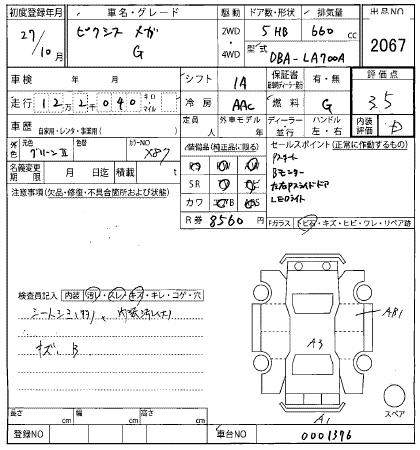 初度登録年月 車名・グレード 駆動 ドア数・形状 排気量 出品NO
27/10月 ピクシス メガ G 2WD・4WD 5 HB 660 cc 2067
型式 DBA-LA700A
車検 年 月 シフト IA 保証書 有・無 評価点
走行 12万2千040 キロ・マイル 冷房 AAC 燃料 G 3.5
車歴 自家用・レンタ・事業用( ) 定員 人 外車モデル 年 ディーラー・並行 ハンドル 左・右 内装評価 D
外色 グリーンⅡ 色替 カラーNO X87 装備品(純正品に限る) セールスポイント(正常に作動するもの)
名義変更期限 月 日迄 積載 t SR Pスタート
注意事項(欠品・修復・不具合箇所および状態) カワ Bモニター
左右Pスライドドア
R券 8560円 LEDライト
Fガラス トビ石・キズ・ヒビ・ワレ・リペア跡
検査員記入 内装 汚レ・スレ・キズ・キレ・コゲ・穴
シートシミ
キズ、B
AB1
A3
A1
スペア
長さ cm 幅 cm 高さ cm
登録NO 車台NO 0001376